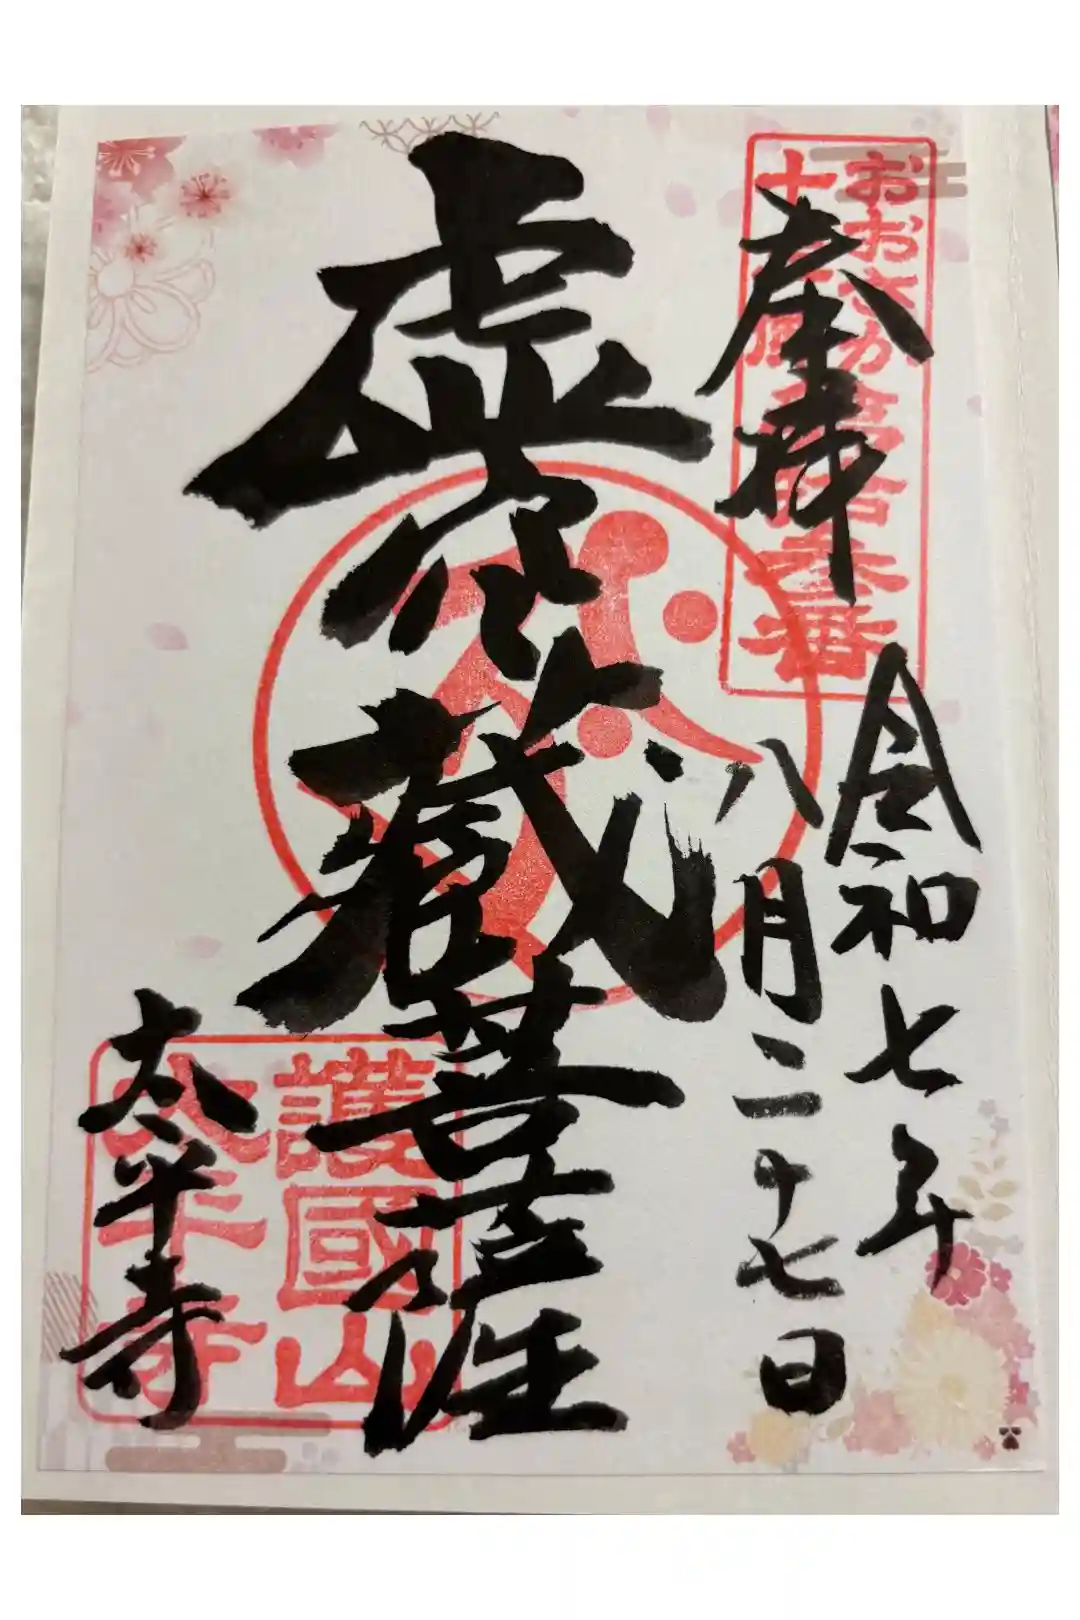 奉拝
おおさか
十
番
令和七年
八月二十七日
虚空蔵菩薩
護國山
太平寺
太平寺